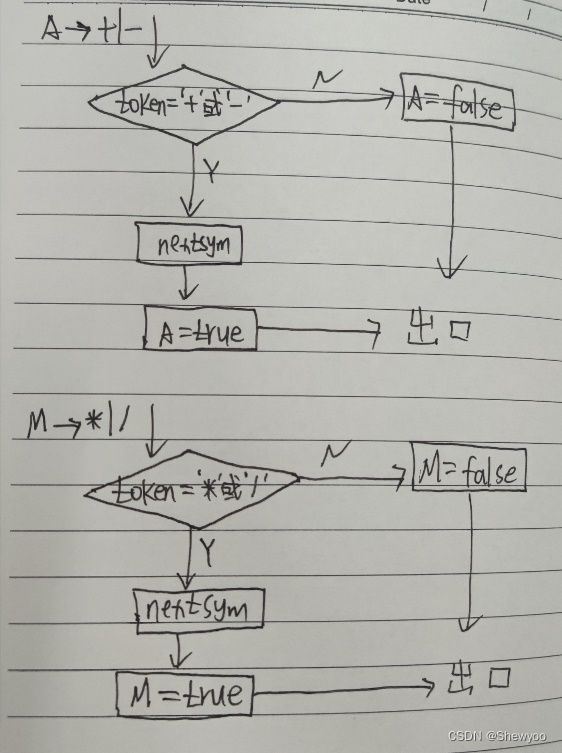 Date
A→+|-
token='+'或'-'
N
A=false
Y
nextsym
A=true
出口
M→*|/
token='*'或'/'
N
M=false
Y
nextsym
M=true
出口
CSDN @Shewyoo